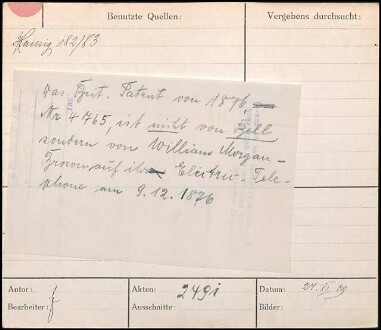 Benutzte Quellen:
Vergebens durchsucht:
Hennig 182/83
Das Brit. Patent von 1876,
Nr 4765, ist nicht von Bell
sondern von William Morgan-
Brown auf Electric-Tele-
phone am 9.12.1876
Autor:
Akten:
2491
Datum:
21. XI 09
Bearbeiter:
Ausschnitte:
Bilder: